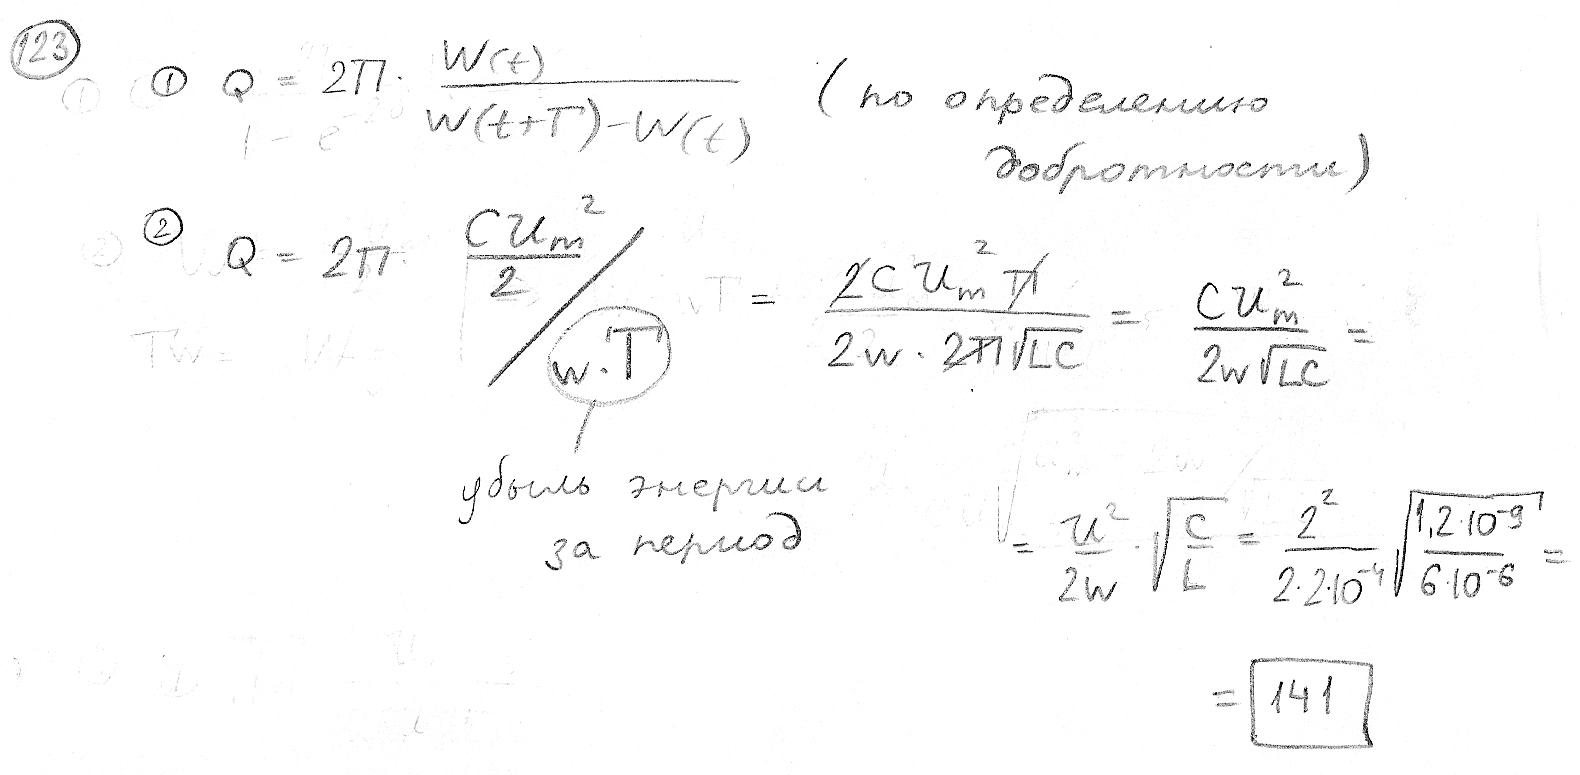 123
① Q = 2π · W(t) / (W(t+T) − W(t)) (по определению
добротности)
② Q = 2π · (CUₘ² / 2) / (w·T) = 2CUₘ²π / (2w · 2π√LC) = CUₘ² / (2w√LC) =
убыль энергии
за период
= U² / 2w · √(C/L) = 2² / (2·2·10⁻⁴) √(1,2·10⁻⁹ / 6·10⁻⁶) =
= 141